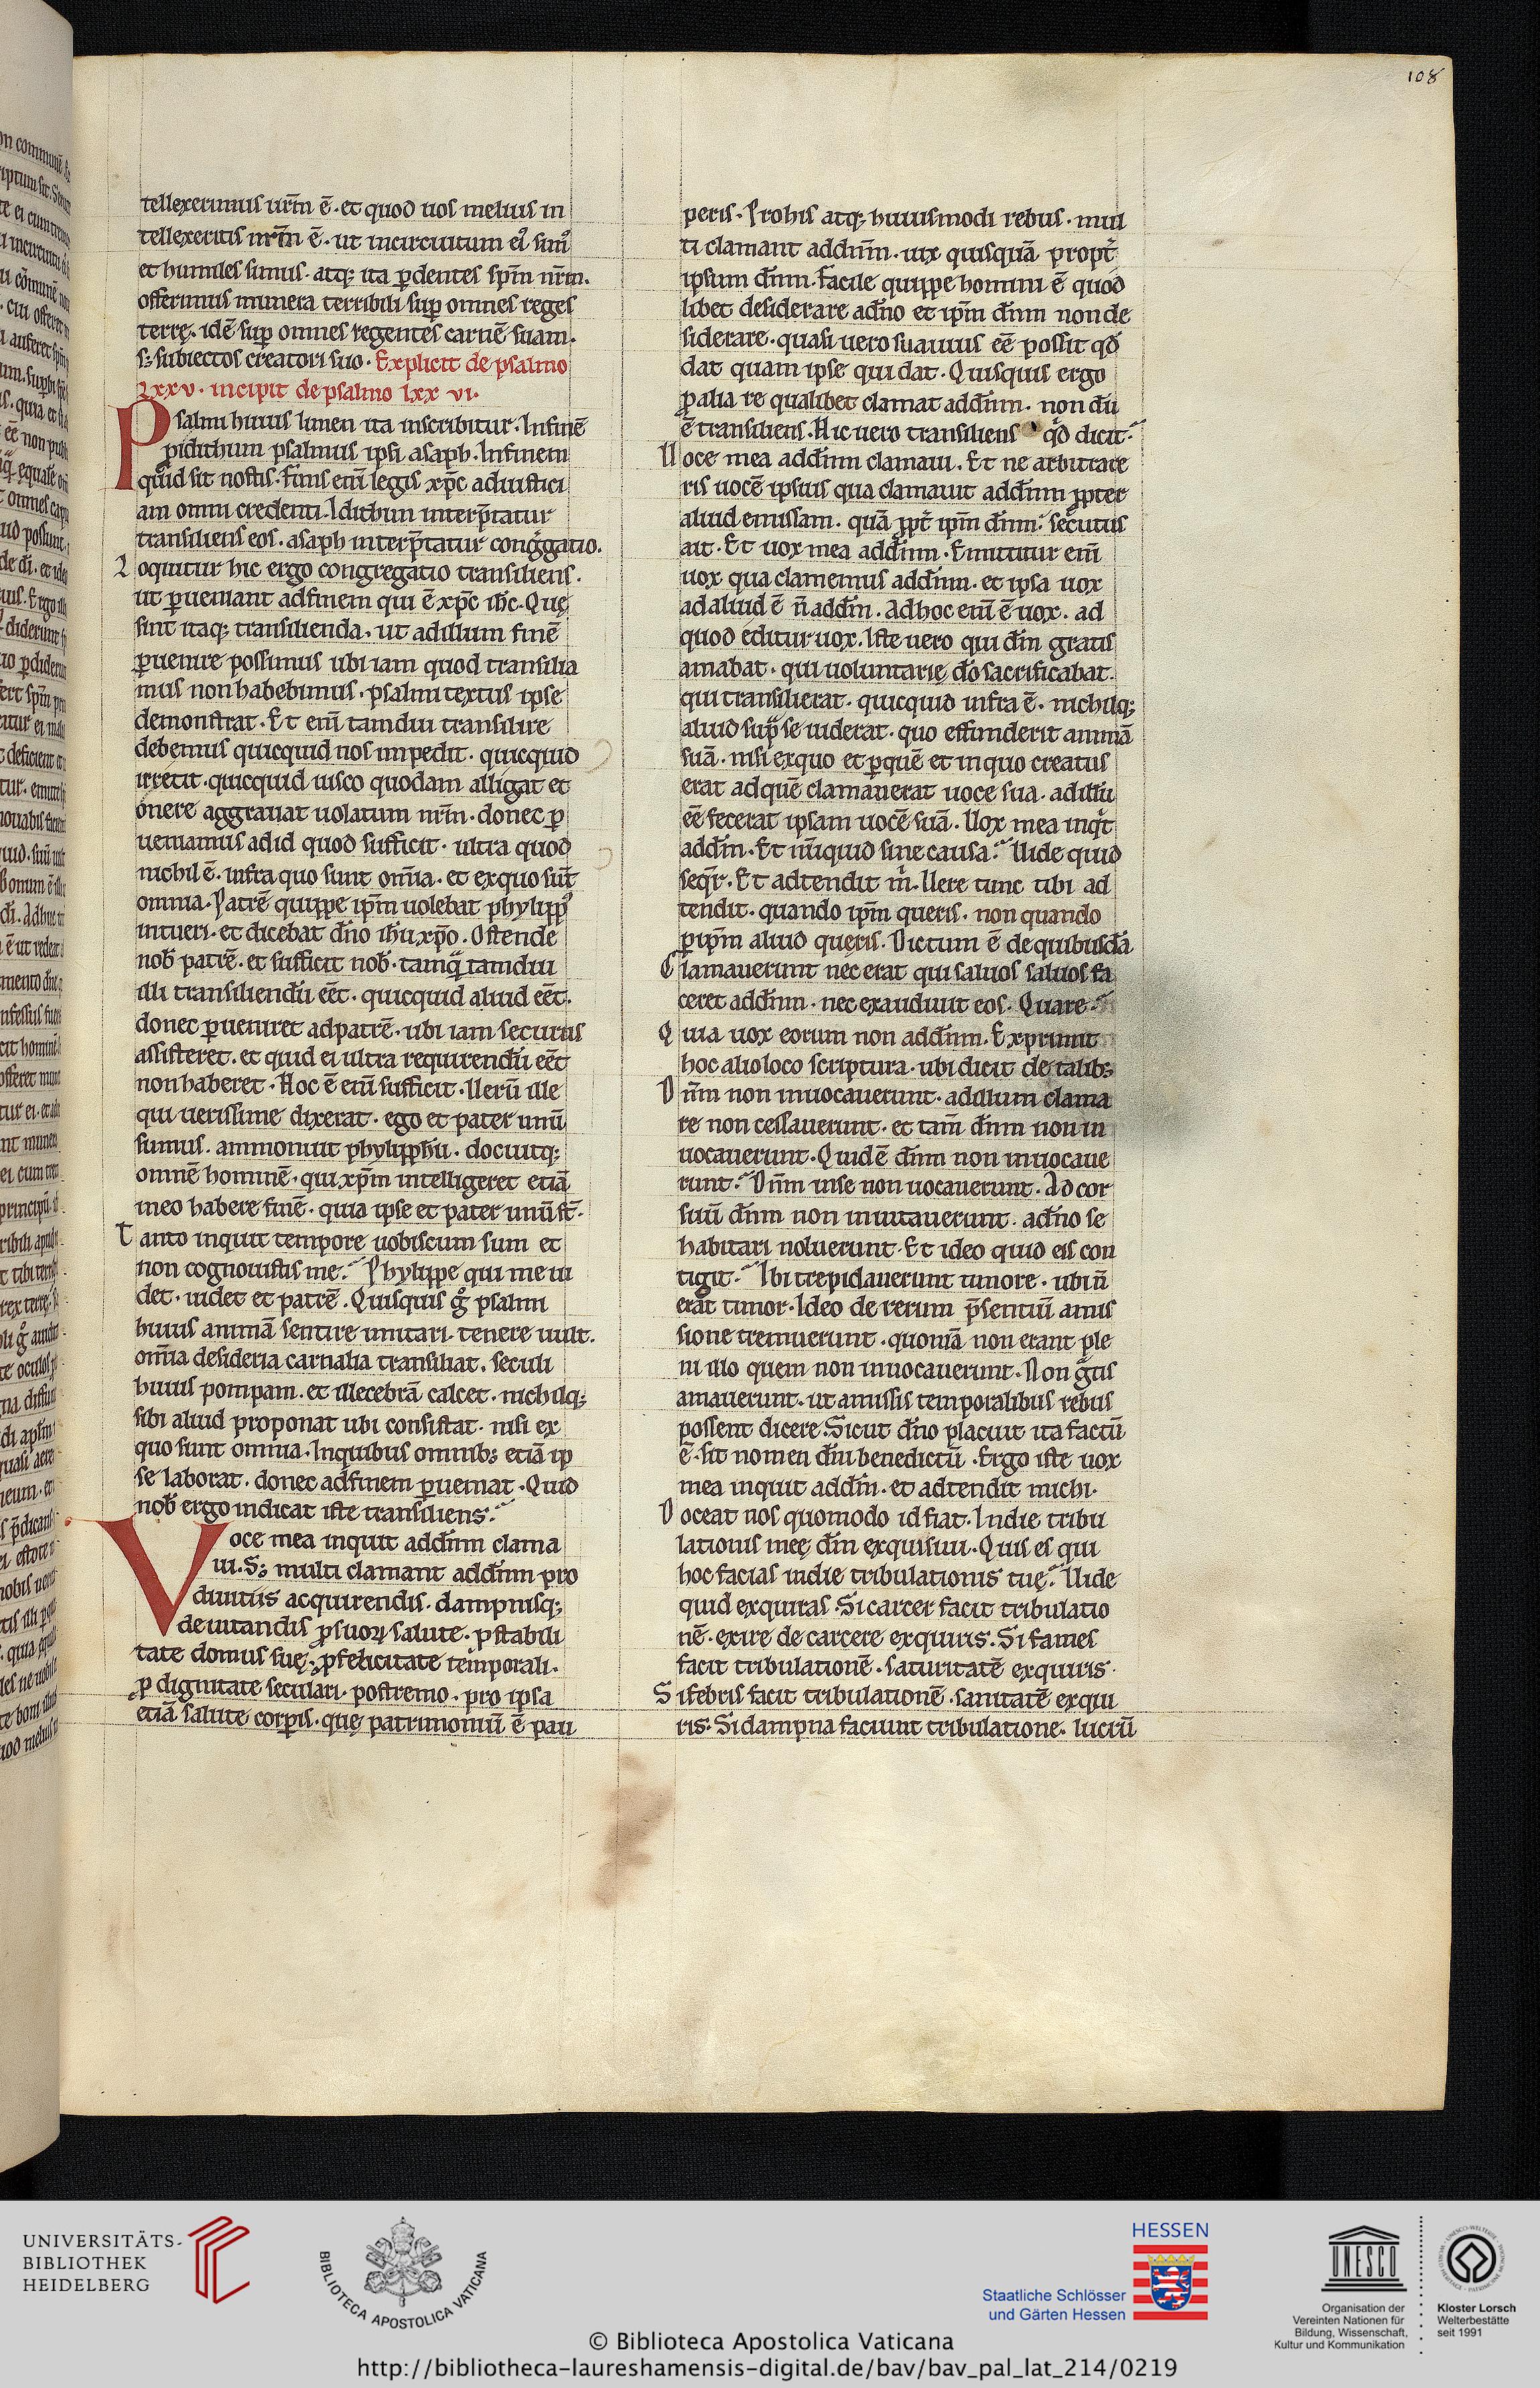 108
tellexerimus ur̄m ē. et quod uos melius in
tellexeritis nr̄m ē. ut incircuitum ei' sim'
et humiles simus. atq; ita ꝑdentes sp̄m nr̄m.
offerimus munera terribili suꝑ omnes reges
terrę. idē suꝑ omnes regentes carnē suam.
s; subiectos creatori suo. Explicit de psalmo
lxxv. incipit de psalmo lxx vi.
Psalmi huius limen ita inscribitur. Infinē
ꝑidithum psalmus ipsi asaph. Infinem
quid sit nostis. Finis eni̅ legis xp̄c adiustici
am omni credenti. Idithun interp̄tatur
transiliens eos. asaph interp̄tatur congͣgatio.
Loquitur hic ergo congregatio transiliens.
ut ꝑueniant adfinem qui ē xp̄c ih̄c. Quę
sint itaq; transilienda. ut adillum finē
ꝑuenire possimus ubi iam quod transilia
mus non habebimus. psalmi textus ipse
demonstrat. Et eni̅ tamdiu transilire
debemus quicquid nos impedit. quicquid
irretit. quicquid uisco quodam alligat et
onere aggrauat uolatum nr̄m. donec ꝑ
ueniamus adid quod sufficit. ultra quod
nichil ē. infra quo sunt om̄ia. et exquo su̅t
omnia. Patrē quippe ip̄m uolebat phylipp'
intueri. et dicebat dn̄o ih̄u xp̄o. Ostende
nob̄ patrē. et sufficit nob̄. tamqͣ̄ tamdiu
illi transiliendū eēt. quicquid aliud eēt.
donec ꝑueniret adpatrē. ubi iam securus
assisteret. et quid ei ultra requirendū eēt
non haberet. Hoc ē eni̅ sufficit. Uerū ille
qui uerissime dixerat. ego et pater unū
sumus. ammonuit phylipphū. docuitq;
omnē hominē. qui xp̄m intelligeret etiā
ineo habere finē. quia ipse et pater unū st̄.
Tanto inquit tempore uobiscum sum et
non cognouistis me? Phylippe qui me ui
det. uidet et patrē. Quisquis gͦ psalmi
huius animā sentire imitari. tenere uult.
om̄ia desideria carnalia transiliat. seculi
huius pompam. et illecebrā calcet. nichilq;
sibi aliud proponat ubi consistat. nisi ex
quo sunt omnia. Inquibus omnib; etiā ip
se laborat. donec adfinem ꝑueniat. Quid
nob̄ ergo indicat iste transiliens?
Voce mea inquit addn̄m clama
ui. S; multi clamant addn̄m pro
diuitiis acquirendis. dampnisq;
deuitandis ꝓ suoꝝ salute. ꝓ stabili
tate domus suę. ꝓ felicitate temporali.
ꝓ dignitate seculari. postremo. pro ipsa
etiā salute corꝑis. quę patrimoniū ē pau
peris. Prohis atq; huiusmodi rebus. mul
ti clamant addn̄m. uix quisquā propt̄
ipsum dn̄m. Facile quippe homini ē quod
libet desiderare adn̄o et ip̄m dn̄m non de
siderare. quasi uero suauius eē possit qd̄
dat quam ipse qui dat. Quisquis ergo
ꝓ alia re qualibet clamat addn̄m. non du̅
ē transiliens. Hic uero transiliens qͥd dicit?
Uoce mea addn̄m clamaui. Et ne arbitrare
ris uocē ipsius qua clamauit addn̄m ꝓpter
aliud emissam. quā ꝓpt̄ ip̄m dn̄m. secutus
ait. Et uox mea addn̄m. Emittitur eni̅
uox qua clamemus addn̄m. et ipsa uox
adaliud ē n̄ addm̄. Adhoc eni̅ ē uox. ad
quod editur uox. Iste uero qui dm̄ gratis
amabat. qui uoluntarię dō sacrificabat.
qui transilierat. quicquid infra ē. nichilq;
aliud supͣ se uiderat. quo effunderit animā
suā. nisi exquo et ꝑquē et inquo creatus
erat adquē clamauerat uoce sua. adillū
eē fecerat ipsam uocē suā. Uox mea inqͥt
addm̄. Et nūquid sine causa? Uide quid
seqͥr. Et adtendit m̄. Uere tunc tibi ad
tendit. quando ip̄m queris. non quando
ꝑ ip̄m aliud quęris. Dictum ē de quibusdā
Clamauerunt nec erat qui saluos saluos fa
ceret addn̄m. nec exaudiuit eos. Quare?
Quia uox eorum non addn̄m. Exprimit
hoc alio loco scriptura. ubi dicit de talib;
Dn̄m non inuocauerunt. adillum clama
re non cessauerunt. et tam̄ dn̄m non in
uocauerunt. Quid ē dn̄m non inuocaue
runt? Dn̄m inse non uocauerunt. Ad cor
suū dn̄m non inuitauerunt. adn̄o se
habitari noluerunt. Et ideo quid eis con
tigit? Ibi trepidauerunt timore. ubi n̄
erat timor. Ideo de rerum p̄sentiū amis
sione tremuerunt. quoniā non erant ple
ni illo quem non inuocauerunt. Non gͣtis
amauerunt. ut amissis temporalibus rebus
possent dicere. Sicut dn̄o placuit ita factū
ē. sit nomen dn̄i benedictū. Ergo iste uox
mea inquit addm̄. et adtendit michi.
Doceat nos quomodo id fiat. Indie tribu
lationis meę dm̄ exquisiui. Quis es qui
hoc facias indie tribulationis tuę? Uide
quid exquiras. Si carcer facit tribulatio
nē. exire de carcere exquiris. Si fames
facit tribulationē. saturitatē exquiris.
Si febris facit tribulationē. sanitatē exqui
ris. Si dampna faciunt tribulatione. lucrū
UNIVERSITÄTS-
BIBLIOTHEK
HEIDELBERG
BIBLIOTECA APOSTOLICA VATICANA
HESSEN
Staatliche Schlösser
und Gärten Hessen
UNESCO
Organisation der
Vereinten Nationen für
Bildung, Wissenschaft,
Kultur und Kommunikation
Kloster Lorsch
Welterbestätte
seit 1991
© Biblioteca Apostolica Vaticana
http://bibliotheca-laureshamensis-digital.de/bav/bav_pal_lat_214/0219